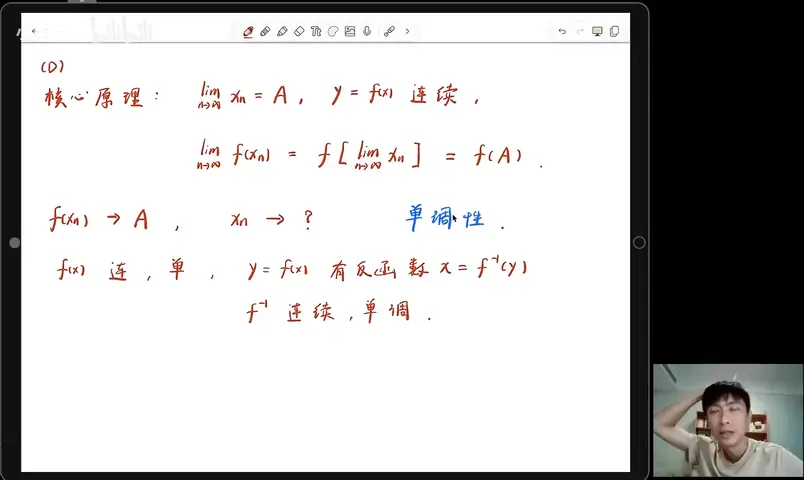 (D)
核心原理： lim n→∞ xn = A， y = f(x) 连续，
lim n→∞ f(xn) = f [ lim n→∞ xn ] = f(A) .
f(xn) → A ， xn → ? 单调性 .
f(x) 连，单， y = f(x) 有反函数 x = f⁻¹(y)
f⁻¹ 连续，单调 .